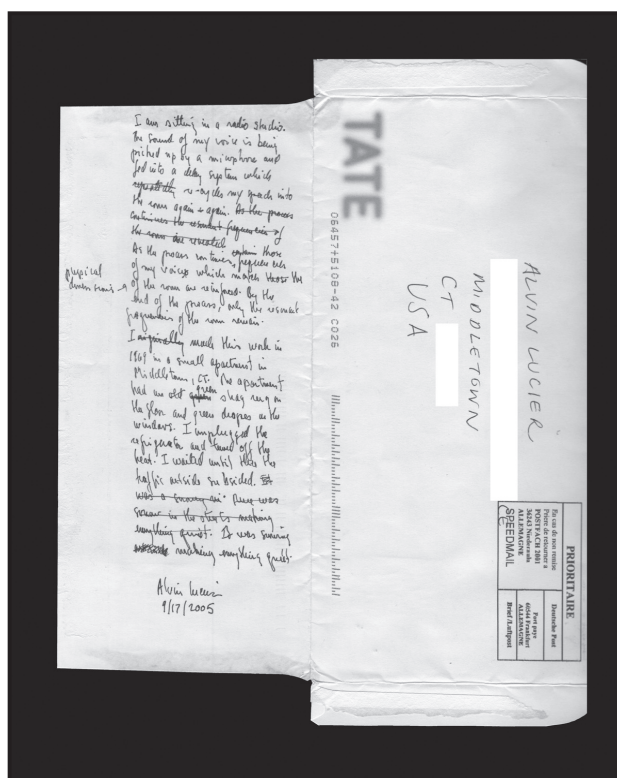 I am sitting in a radio studio.
The sound of my voice is being
picked up by a microphone and
fed into a delay system which
repeatedly re-cycles my speech into
the room again + again. As the process
continues the resonant frequencies of
the room are revealed
As the process continues, those
frequencies
of my voice which match those the
physical
dimensions
of the room are reinforced. By the
end of the process, only the resonant
frequencies of the room remain.
I originally made this work in
1969 in a small apartment in
Middletown, CT. The apartment
had an old green shag rug on
the floor and green drapes on the
windows. I unplugged the
refrigerator and turned off the
heat. I waited until the
traffic outside subsided. It
was a snowy There was
snow in the streets making
everything quiet. It was snowing
making everything quiet.
Alvin Lucier
9/17/2005
TATE
06457+5108-42 C026
ALVIN LUCIER
MIDDLETOWN
CT
USA
PRIORITAIRE
En cas de non remise
Prière de retourner à
POSTFACH 2001
36243 Niederaula
ALLEMAGNE
SPEEDMAIL
CE
Deutsche Post
Port payé
60544 Frankfurt
ALLEMAGNE
Brief/Luftpost